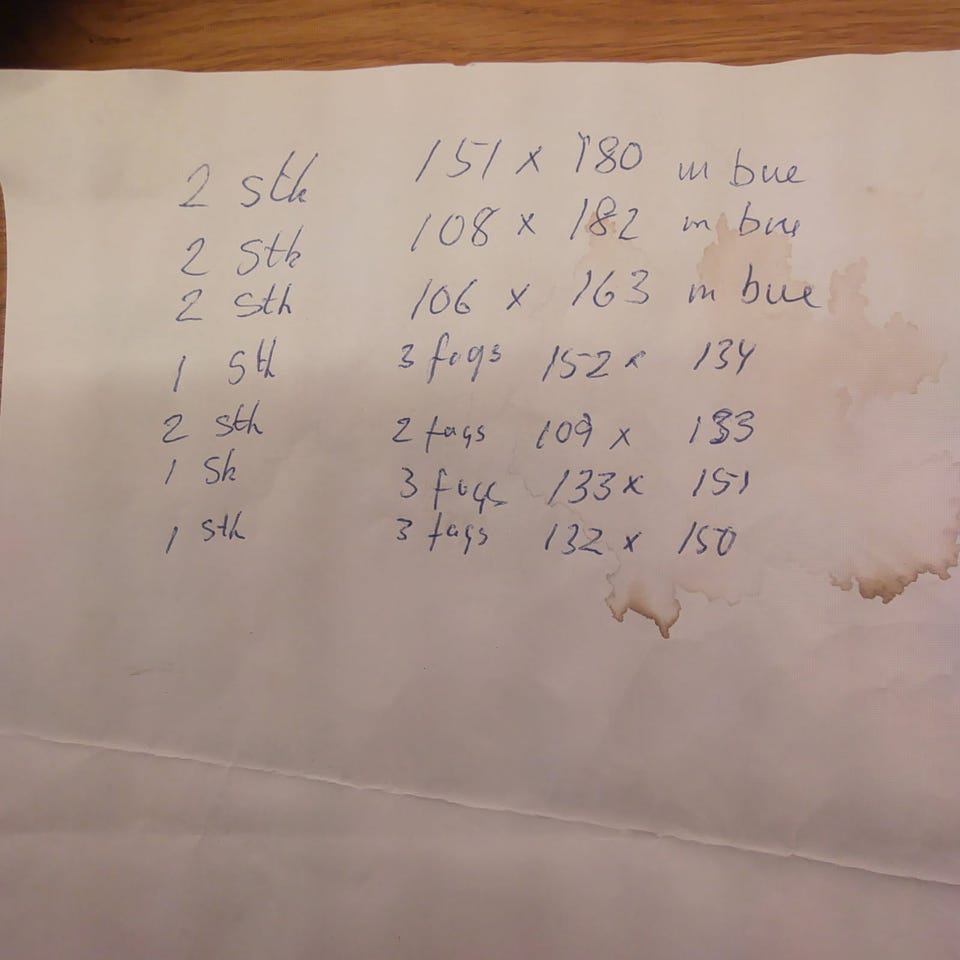 2 stk 151 x 180 m bue
2 stk 108 x 182 m bue
2 stk 106 x 163 m bue
1 stk 3 fags 152 x 134
2 stk 2 fags 109 x 133
1 Sk 3 fags 133 x 151
1 stk 3 fags 132 x 150